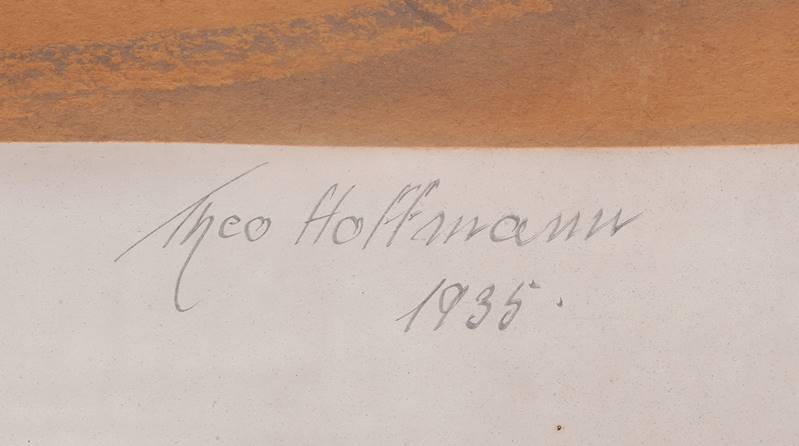 Theo Hoffmann
1935.